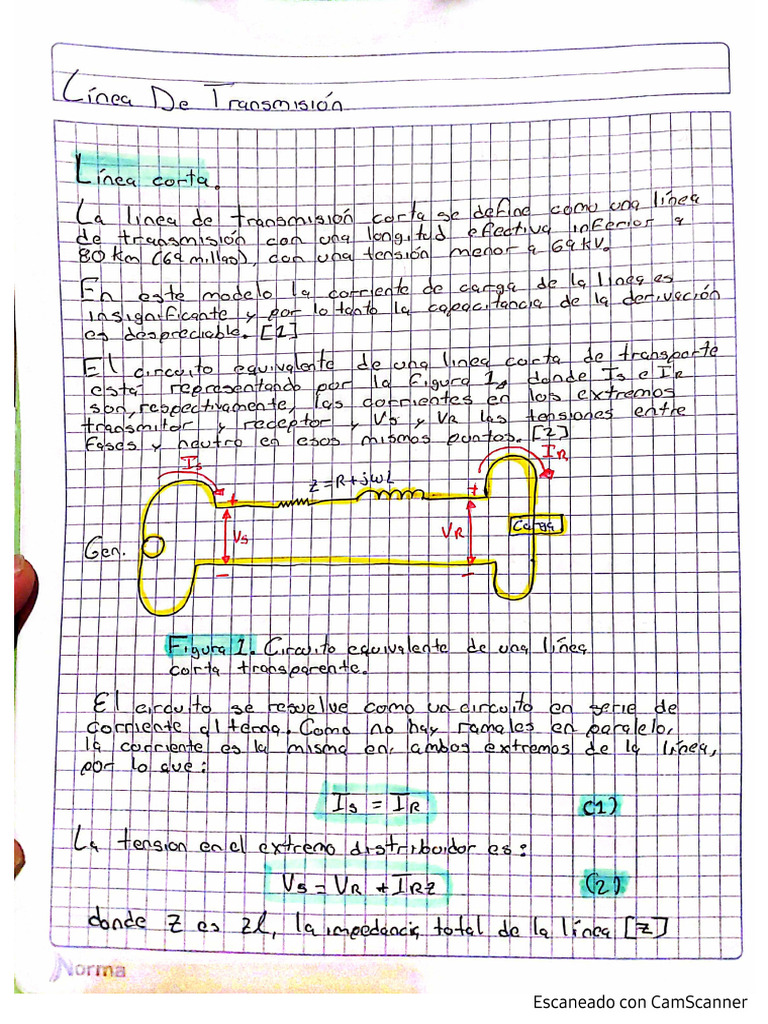 Línea De Transmisión
Línea corta.
La linea de transmisión corta se define como una línea
de transmisión con una longitud efectiva inferior a
80 km (69 millas), con una tensión menor a 69 kV.
En este modelo la corriente de carga de la linea es
insignificante y por lo tanto la capacitancia de la derivación
es despreciable. [1]
El circuito equivalente de una linea corta de transporte
está representando por la figura 1, donde Is e IR
son, respectivamente, las corrientes en los extremos
transmitor y receptor y Vs y VR las tensiones entre
fases y neutro en esos mismos puntos. [2]
Is
IR
Z=R+jωL
+
+
Gen.
Vs
VR
Carga
-
-
Figura 1. Circuito equivalente de una línea
corta transparente.
El circuito se resuelve como un circuito en serie de
corriente alterna. Como no hay ramales en paralelo,
la corriente es la misma en, ambos extremos de la línea,
por lo que:
Is = IR (1)
La tension en el extremo distribuidor es:
Vs = VR + IRZ (2)
donde Z es zl, la impedancia total de la línea [z]
Norma
Escaneado con CamScanner